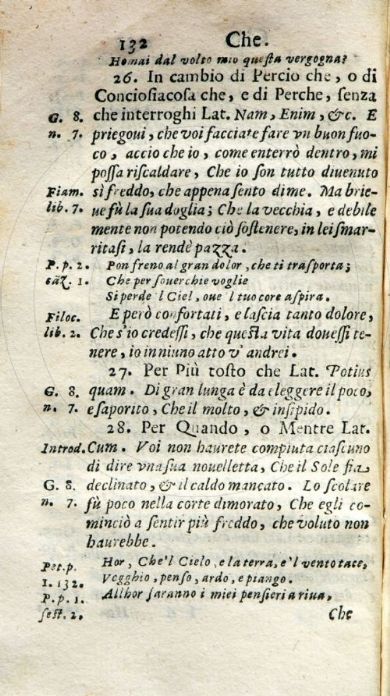 132 Che.
Homai dal volto mio questa vergogna?
26. In cambio di Percio che, o di
Conciosiacosa che, e di Perche, senza
G. 8. che interroghi Lat. Nam, Enim, &c. E
n. 7. priegoui, che voi facciate fare vn buon fuo-
co, accio che io, come enterrò dentro, mi
possa riscaldare, Che io son tutto diuenuto
Fiam. sì freddo, che appena sento di me. Ma brie-
lib. 7. ue fù la sua doglia; Che la vecchia, e debile
mente non potendo ciò sostenere, in lei smar-
ritasi, la rendè pazza.
P. p. 2. Pon freno al gran dolor, che ti trasporta;
caz. 1. Che per souerchie voglie
Si perde 'l Ciel, oue 'l tuo core aspira.
Filoc. E però confortati, e lascia tanto dolore,
lib. 2. Che s'io credessi, che questa vita douessi te-
nere, io in niuno atto v' andrei.
27. Per Più tosto che Lat. Potius
G. 8. quam. Di gran lunga è da eleggere il poco,
n. 7. e saporito, Che il molto, & insipido.
28. Per Quando, o Mentre Lat.
Introd. Cum. Voi non haurete compiuta ciascuno
di dire vna sua nouelletta, Che il Sole fia
G. 8. declinato, & il caldo mancato. Lo scolare
n. 7. fù poco nella corte dimorato, Che egli co-
minciò a sentir più freddo, che voluto non
haurebbe.
Pet. p. Hor, Che'l Cielo, e la terra, e'l vento tace,
1. 132. Vegghio, penso, ardo, e piango.
P. p. 1. Allhor saranno i miei pensieri a riua,
sest. 2. Che